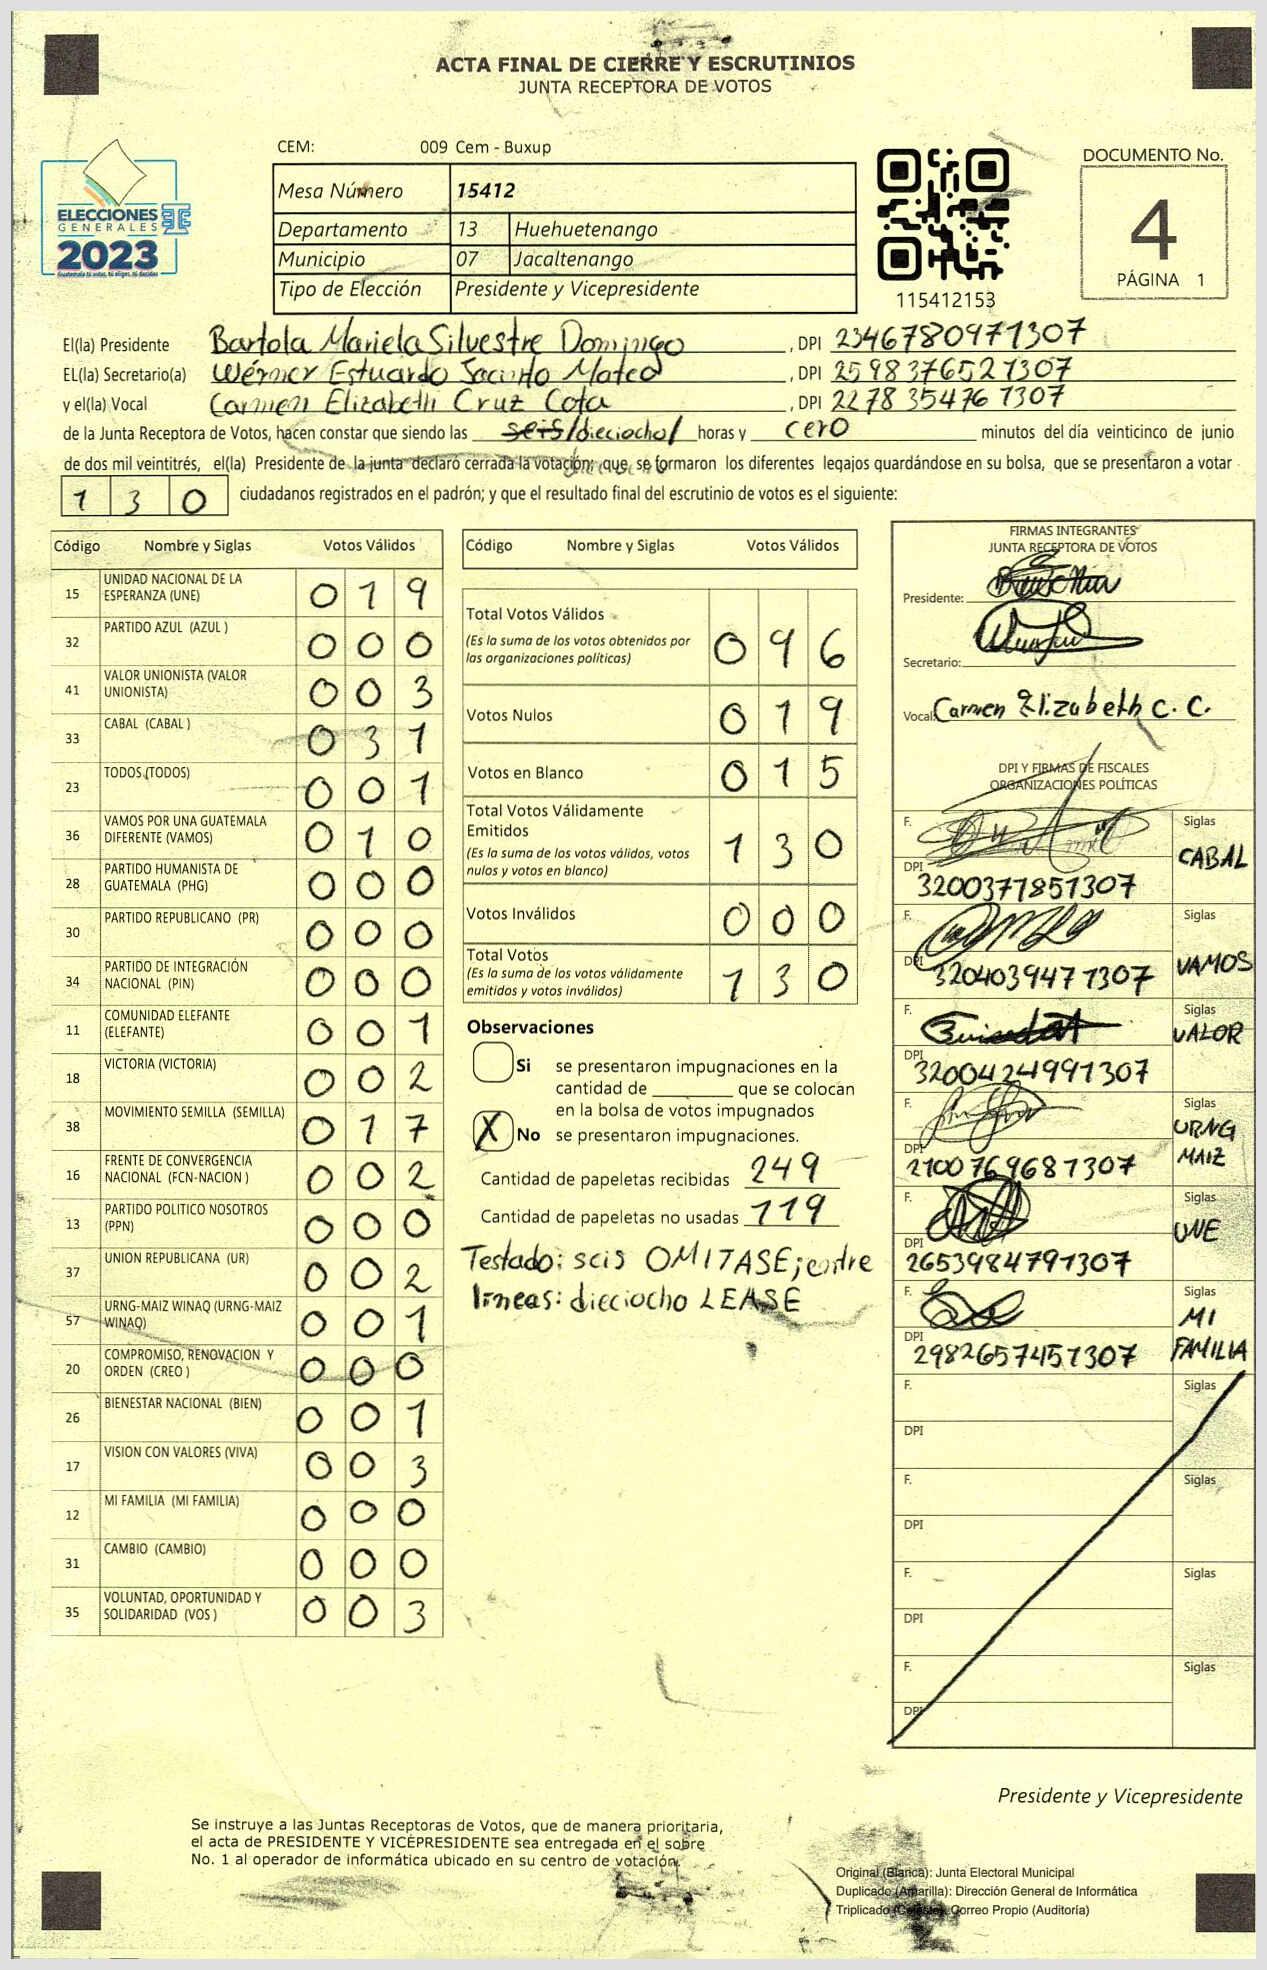 ACTA FINAL DE CIERRE Y ESCRUTINIOS
JUNTA RECEPTORA DE VOTOS
ELECCIONES
GENERALES
2023
CEM: 009 Cem - Buxup
Mesa Número 15412
Departamento 13 Huehuetenango
Municipio 07 Jacaltenango
Tipo de Elección Presidente y Vicepresidente
115412153
DOCUMENTO No.
4
PÁGINA 1
El(la) Presidente Bartola Mariela Silvestre Domingo, DPI 2346780971307
EL(la) Secretario(a) Werner Estuardo Jacinto Mateo, DPI 2598376521307
y el(la) Vocal Carmen Elizabeth Cruz Cota, DPI 2278354761307
de la Junta Receptora de Votos, hacen constar que siendo las seis/dieciocho/ horas y cero minutos del día veinticinco de junio
de dos mil veintitrés, el(la) Presidente de la junta declaró cerrada la votación; que se formaron los diferentes legajos quardándose en su bolsa, que se presentaron a votar
130 ciudadanos registrados en el padrón; y que el resultado final del escrutinio de votos es el siguiente:
Código Nombre y Siglas Votos Válidos
15 UNIDAD NACIONAL DE LA ESPERANZA (UNE) 019
32 PARTIDO AZUL (AZUL ) 000
41 VALOR UNIONISTA (VALOR UNIONISTA) 003
33 CABAL (CABAL ) 031
23 TODOS (TODOS) 001
36 VAMOS POR UNA GUATEMALA DIFERENTE (VAMOS) 010
28 PARTIDO HUMANISTA DE GUATEMALA (PHG) 000
30 PARTIDO REPUBLICANO (PR) 000
34 PARTIDO DE INTEGRACIÓN NACIONAL (PIN) 000
11 COMUNIDAD ELEFANTE (ELEFANTE) 001
18 VICTORIA (VICTORIA) 002
38 MOVIMIENTO SEMILLA (SEMILLA) 017
16 FRENTE DE CONVERGENCIA NACIONAL (FCN-NACION ) 002
13 PARTIDO POLITICO NOSOTROS (PPN) 000
37 UNION REPUBLICANA (UR) 002
57 URNG-MAIZ WINAQ (URNG-MAIZ WINAQ) 001
20 COMPROMISO, RENOVACION Y ORDEN (CREO ) 000
26 BIENESTAR NACIONAL (BIEN) 001
17 VISION CON VALORES (VIVA) 003
12 MI FAMILIA (MI FAMILIA) 000
31 CAMBIO (CAMBIO) 000
35 VOLUNTAD, OPORTUNIDAD Y SOLIDARIDAD (VOS ) 003
Código Nombre y Siglas Votos Válidos
Total Votos Válidos 096
(Es la suma de los votos obtenidos por
las organizaciones políticas)
Votos Nulos 019
Votos en Blanco 015
Total Votos Válidamente
Emitidos 130
(Es la suma de los votos válidos, votos
nulos y votos en blanco)
Votos Inválidos 000
Total Votos 130
(Es la suma de los votos válidamente
emitidos y votos inválidos)
Observaciones
Si se presentaron impugnaciones en la
cantidad de ________ que se colocan
en la bolsa de votos impugnados
X No se presentaron impugnaciones.
Cantidad de papeletas recibidas 249
Cantidad de papeletas no usadas 119
Testado: seis OMITASE; entre
lineas: dieciocho LEASE
FIRMAS INTEGRANTES
JUNTA RECEPTORA DE VOTOS
Presidente:
Secretario:
Vocal: Carmen Elizabeth C. C.
DPI Y FIRMAS DE FISCALES
ORGANIZACIONES POLÍTICAS
F. Siglas CABAL
DPI 3200377851307
F. Siglas VAMOS
DPI 3204039471307
F. Siglas VALOR
DPI 3200424991307
F. Siglas URNG MAIZ
DPI 2100769681307
F. Siglas UNE
DPI 2653984791307
F. Siglas MI FAMILIA
DPI 2982657451307
F. Siglas
DPI
F. Siglas
DPI
F. Siglas
DPI
F. Siglas
DPI
Presidente y Vicepresidente
Se instruye a las Juntas Receptoras de Votos, que de manera prioritaria,
el acta de PRESIDENTE Y VICEPRESIDENTE sea entregada en el sobre
No. 1 al operador de informática ubicado en su centro de votación.
Original (Blanca): Junta Electoral Municipal
Duplicado (Amarilla): Dirección General de Informática
Triplicado (Celeste): Correo Propio (Auditoría)